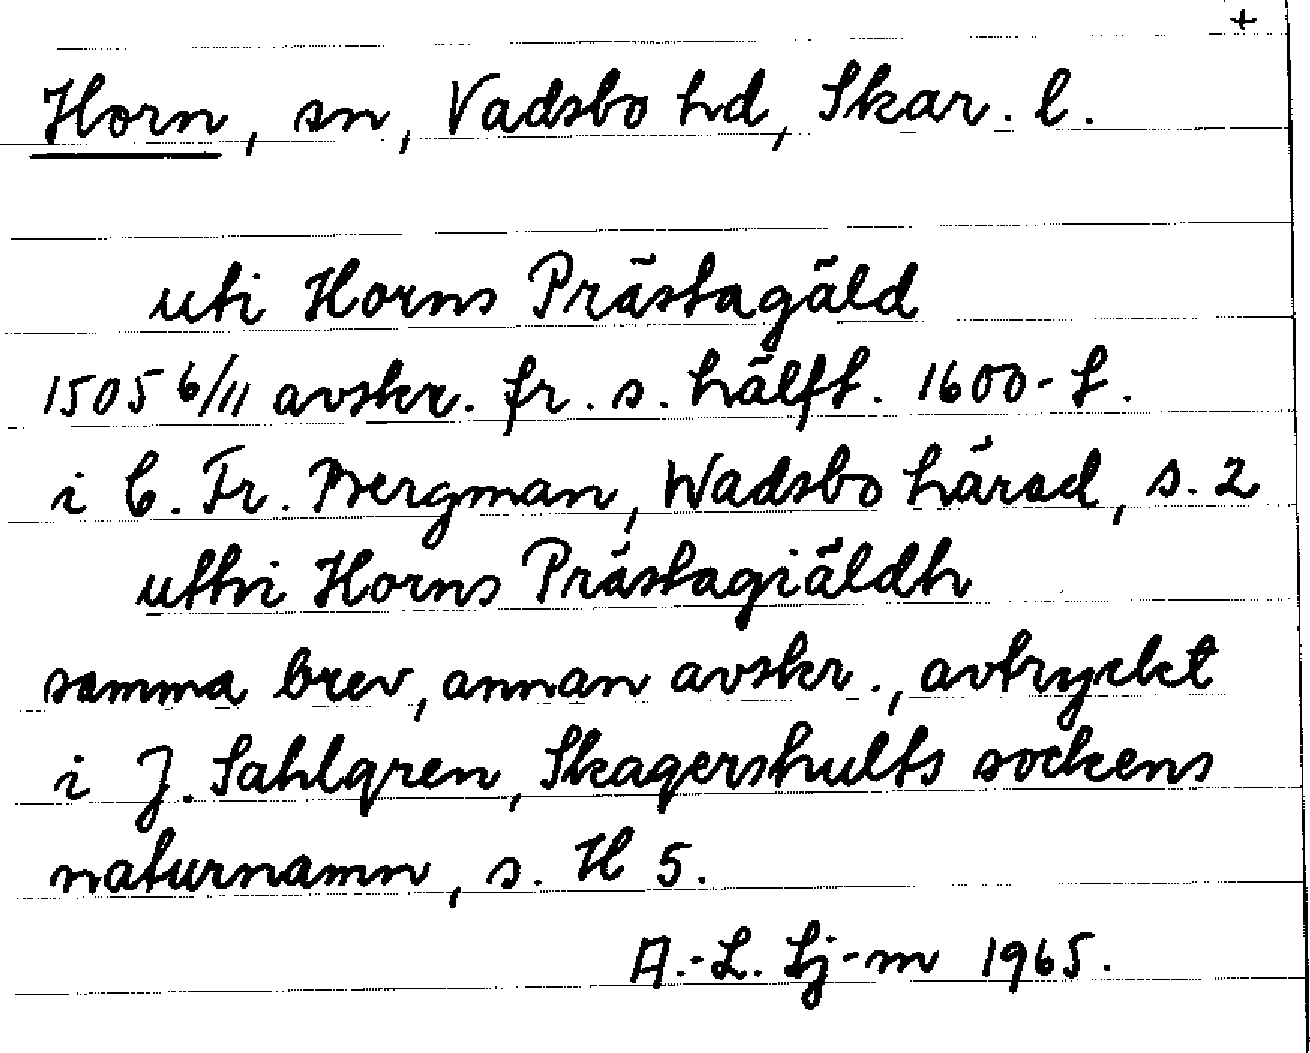 +
Horn, sn, Vadsbo hd, Skar. l.
uti Horns Prästagäld
1505 6/11 avskr. fr. s. hälft. 1600-t.
i C. Fr. Bergman, Wadsbo härad, s. 2
utthi Horns Prästagiäldh
samma brev, annan avskr., avtryckt
i J. Sahlgren, Skagershults sockens
naturnamn, s. H 5.
A.-L. Lj-m 1965.